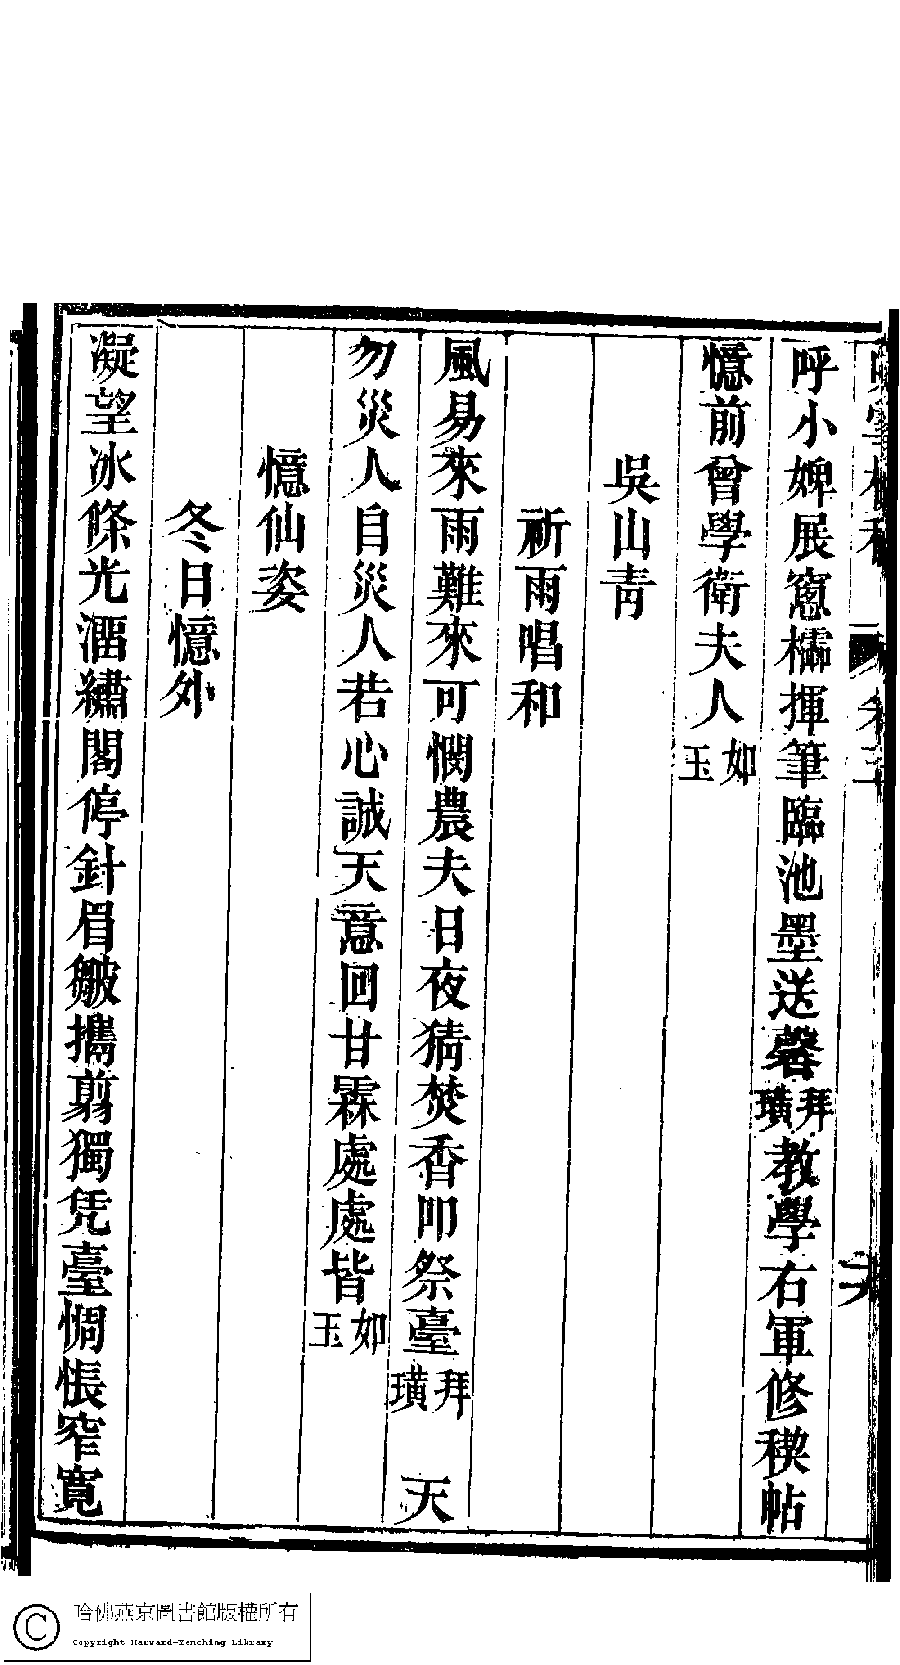 呼小婢展窻櫺揮筆臨池墨送馨拜璜教學右軍修稧帖
憶前曾學衛夫人如玉
吳山青
祈雨唱和
風易來雨難來可憫農夫日夜猜焚香叩祭臺拜璜 天
勿災人自災人若心誠天意回甘霖處處皆如玉
憶仙姿
冬日憶外
凝望冰條光溜繡閣停針眉皺攜剪獨凭臺惆悵窄寬
哈佛燕京圖書館版權所有
Copyright Harvard-Yenching Library